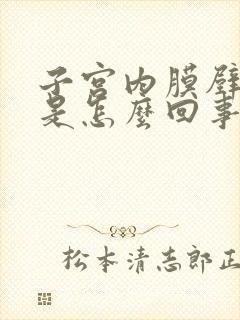 子宫内膜
是怎麼回事
松本清志郎正